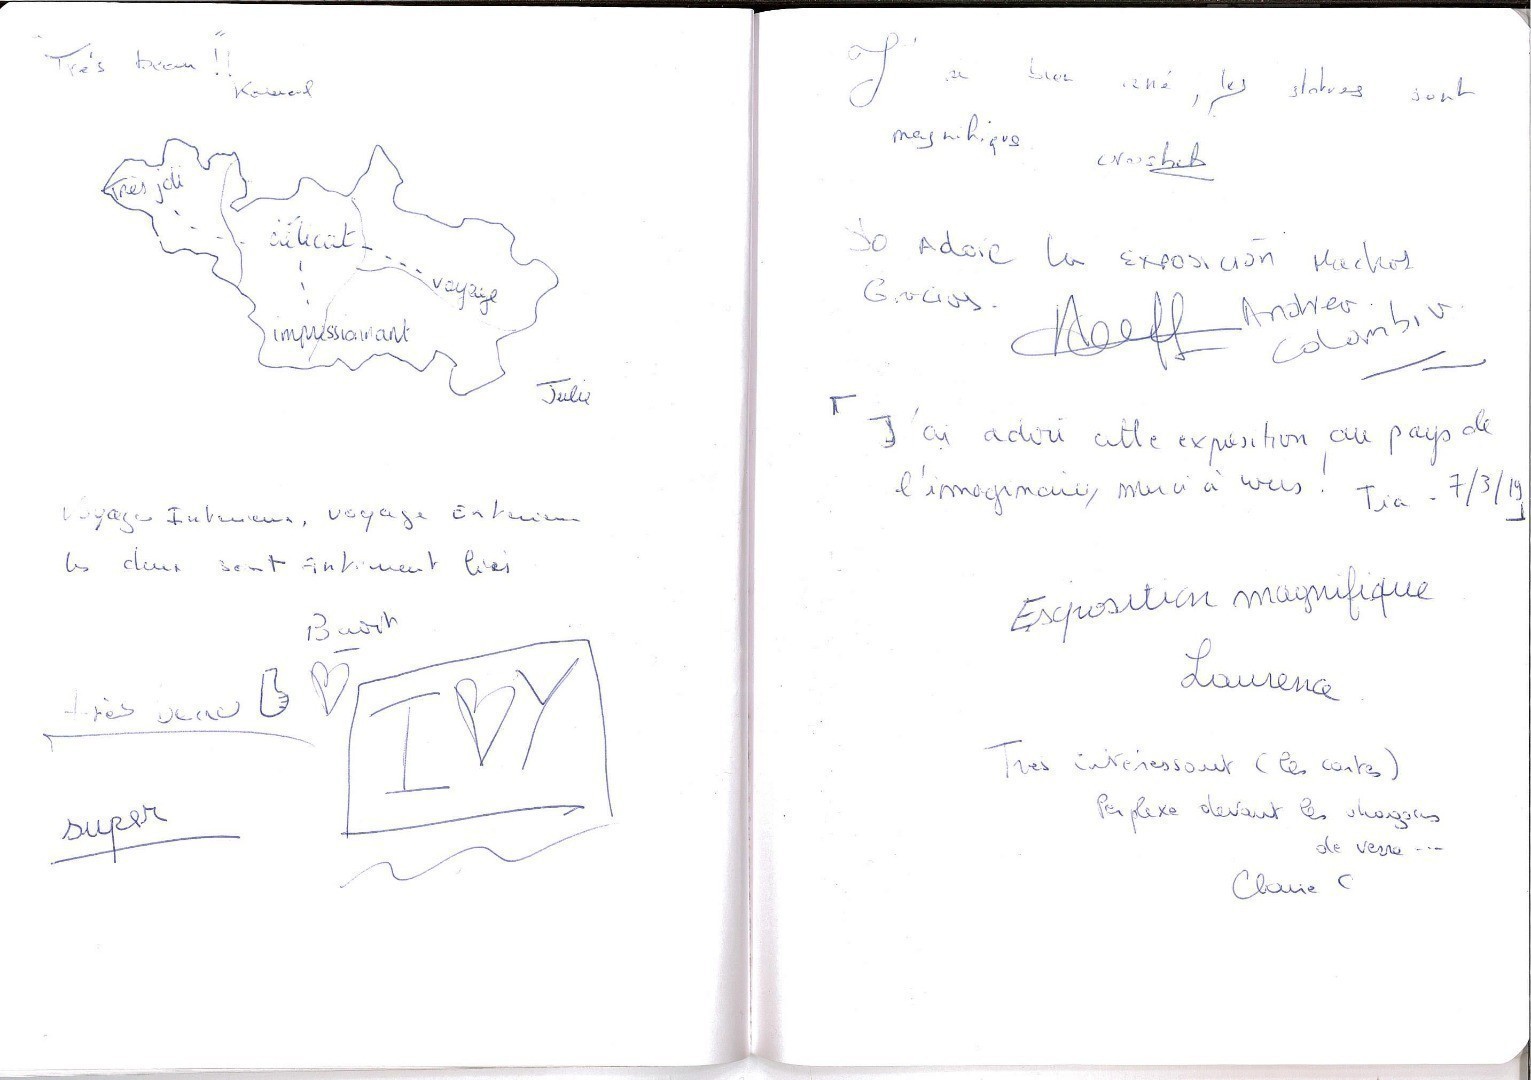 Très beau !!
Très joli
délicat
voyage
impressionnant
Julie
Voyage Interieur, voyage Exterieur
les deux sont intimement liés
Benoit
très
I ♡ Y
super
J'ai bien aimé, les statues sont
magnifiques
Yo Adoré la exposición Muchas
Gracias.
Andrea
Colombia.
J'ai adoré cette exposition au pays de
l'immaginaire, merci à vous !
Tia - 7/3/19
Exposition magnifique
Laurence
Très intéressant (les cartes)
Perplexe devant les
de verre ...
Claire C